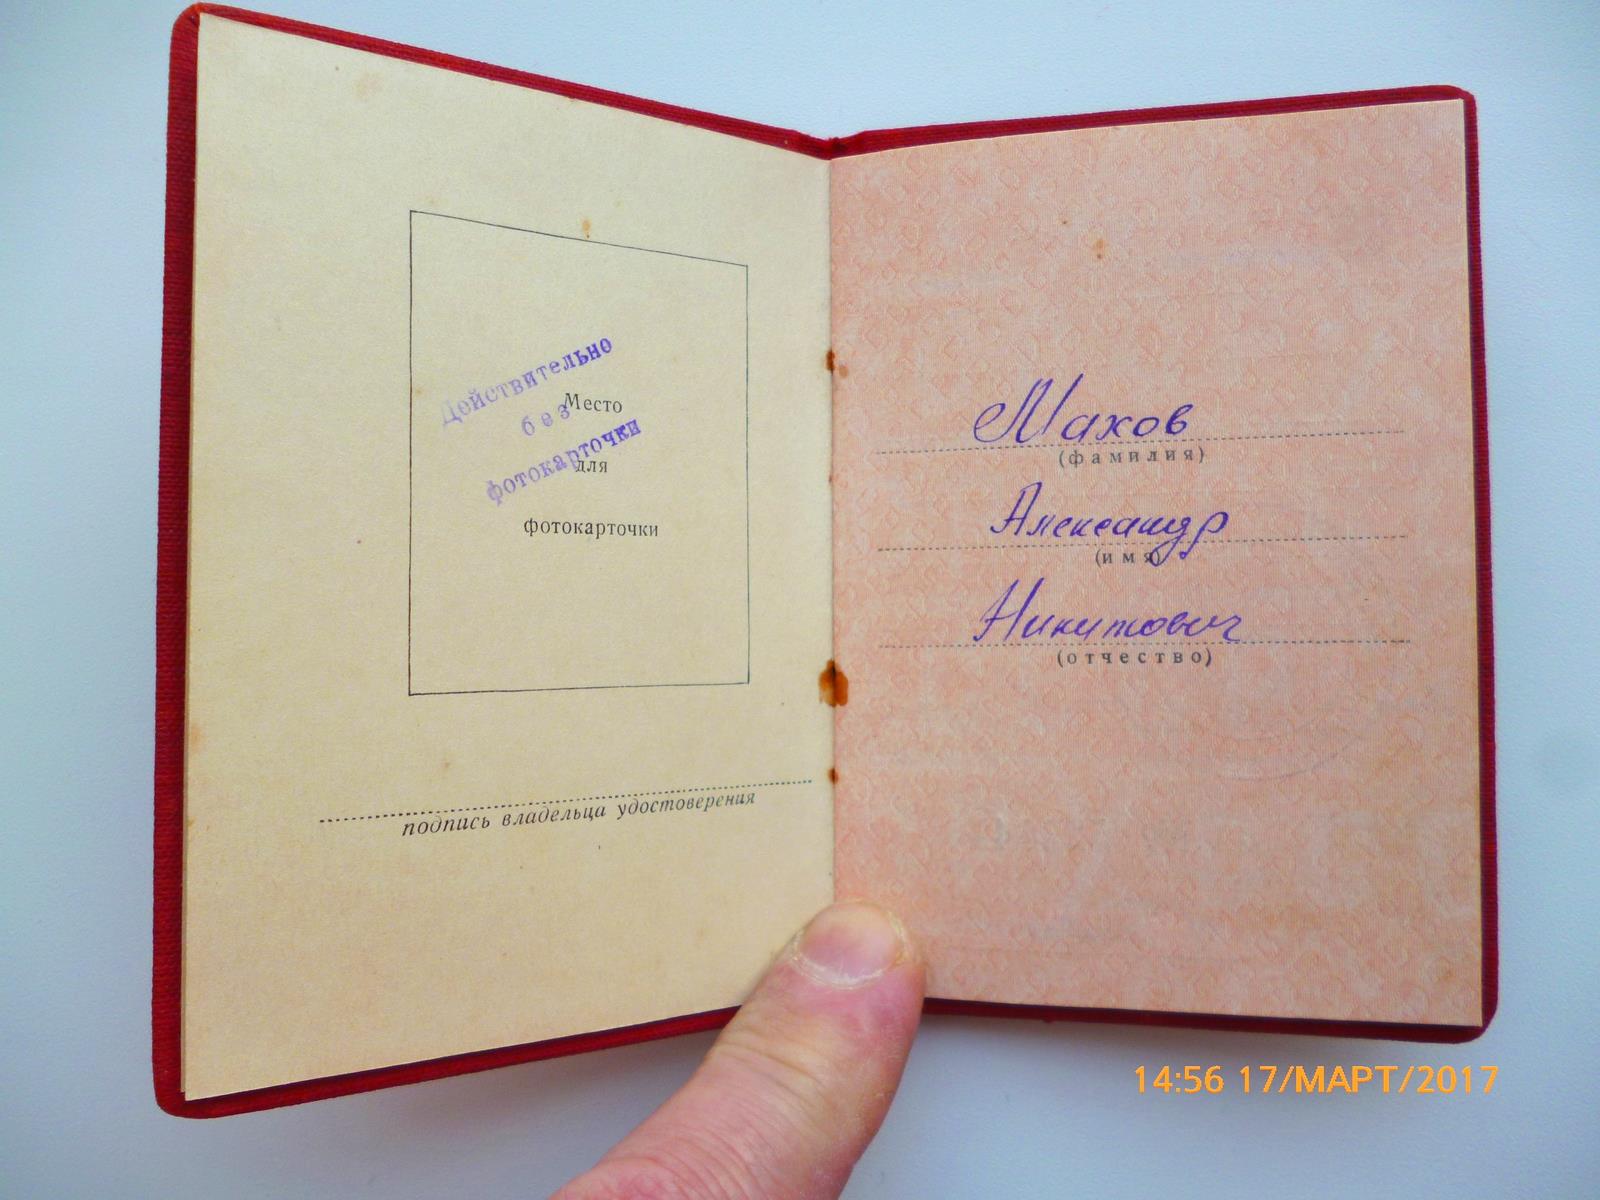 Действительно
без
фотокарточки
Место
для
фотокарточки
подпись владельца удостоверения
Махов
(фамилия)
Александр
(имя)
Никитович
(отчество)
14:56 17/МАРТ/2017